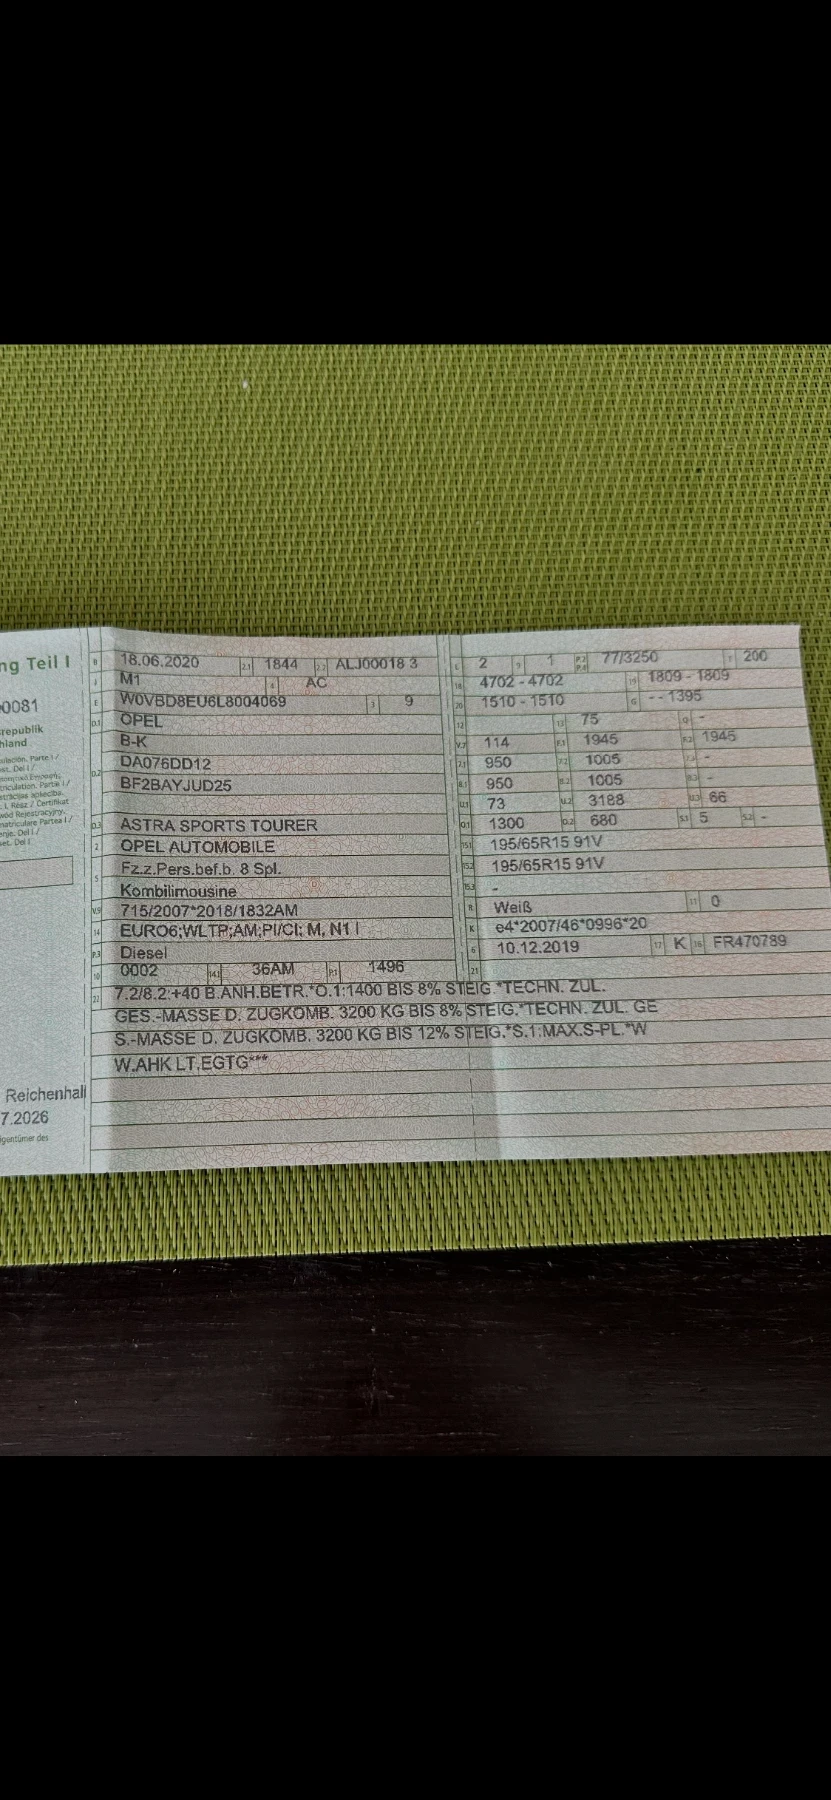 ng Teil I
0081
republik
hland
Reichenhall
7.2026
B 18.06.2020 2.1 1844 2.2 ALJ00018 3
J M1 4 AC
E W0VBD8EU6L8004069 3 9
D.1 OPEL
B-K
D.2 DA076DD12
BF2BAYJUD25
D.3 ASTRA SPORTS TOURER
2 OPEL AUTOMOBILE
5 Fz.z.Pers.bef.b. 8 Spl.
Kombilimousine
V.9 715/2007*2018/1832AM
14 EURO6;WLTP;AM;PI/CI; M, N1 I
P.3 Diesel
10 0002 14.1 36AM P.1 1496
L 2 9 1 P.2 P.4 77/3250 T 200
18 4702 - 4702 19 1809 - 1809
20 1510 - 1510 G - - 1395
12 13 75 Q -
V.7 114 F.1 1945 F.2 1945
7.1 950 7.2 1005 7.3 -
8.1 950 8.2 1005 8.3 -
U.1 73 U.2 3188 U.3 66
O.1 1300 O.2 680 S.1 5 S.2 -
15.1 195/65R15 91V
15.2 195/65R15 91V
15.3 -
R Weiß 11 0
K e4*2007/46*0996*20
6 10.12.2019 17 K 16 FR470789
21
22 7.2/8.2:+40 B.ANH.BETR.*O.1:1400 BIS 8% STEIG.*TECHN. ZUL.
GES.-MASSE D. ZUGKOMB. 3200 KG BIS 8% STEIG.*TECHN. ZUL. GE
S.-MASSE D. ZUGKOMB. 3200 KG BIS 12% STEIG.*S.1:MAX.S-PL.*W
W.AHK LT.EGTG***